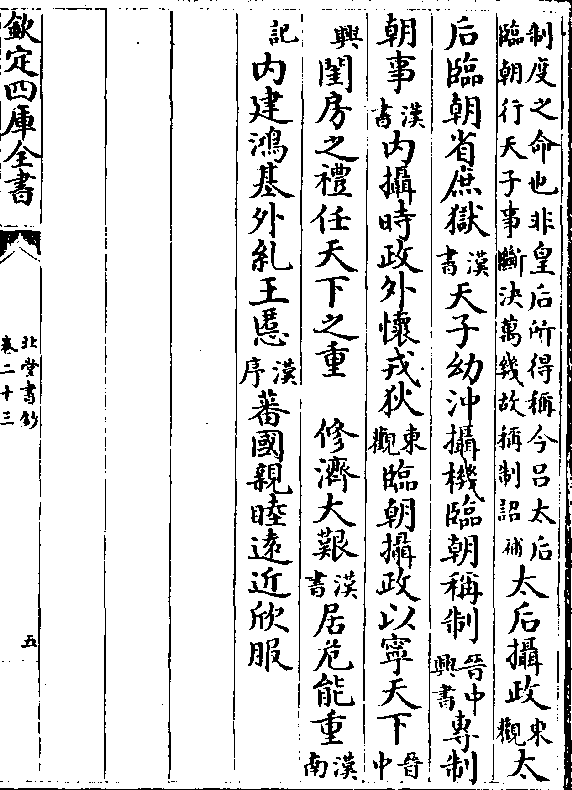 制度之命也非皇后所得稱今吕太后
臨朝行天子事斷決萬幾故稱制詔補
太后攝政東觀太
后臨朝省庶獄漢書天子幼沖攝機臨朝稱制晉中興書專制
朝事漢書内攝時政外懷戎狄東觀臨朝攝政以寧天下晉中
興閨房之禮任天下之重　修濟大艱漢書居危能重漢南
記内建鴻基外糺王慝漢序蕃國親睦遠近欣服
欽定四庫全書
北堂書鈔
卷二十三
五